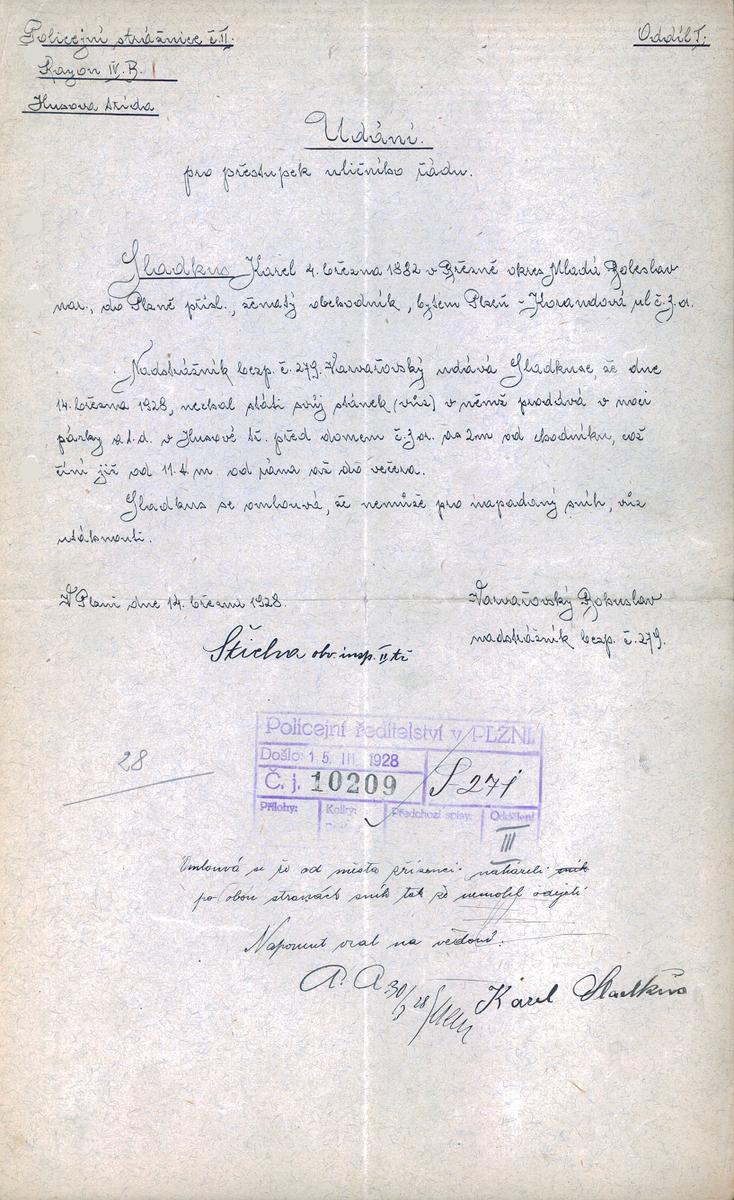 Policejní strážnice č. II.
Oddíl I.
Rayon IV. B.
Husova třída
Udání.
pro přestupek uličního řádu.
Sladkus Karel 4. března 1882 v Březně okres Mladá Boleslav
nar., do Plzně přísl., ženatý obchodník, bytem Plzeň - Korandová ul č. 3. a.
Nadstrážník bezp. č. 279. Varvařovský udává Sladkuse, že dne
14. března 1928, nechal státi svůj stánek (vůz) v němž prodává v noci
párky a. t. d. v Husově tř. před domem č. 3 a. as 2m od chodníku, což
činí již od 11. t. m. od rána až do večera.
Sladkus se omlouvá, že nemůže pro napadaný sníh, vůz
utáhnouti.
V Plzni dne 14. března 1928.
Varvařovský Bohuslav
nadstrážník bezp. č. 279.
Šticha obv. insp. II. tř
Policejní ředitelství v PLZNI.
Došlo: 15. III. 1928
28
Č. j. 10209
S-271
Přílohy: Kolky: Předchozí spisy: Oddělení
III
Omlouvá se že od města přísenci naházeli sníh
po obou stranách sníh tak že nemohl odejeti
Napomenut vzal na vědomí.
A. A 30/3 28
Karel Sladkus